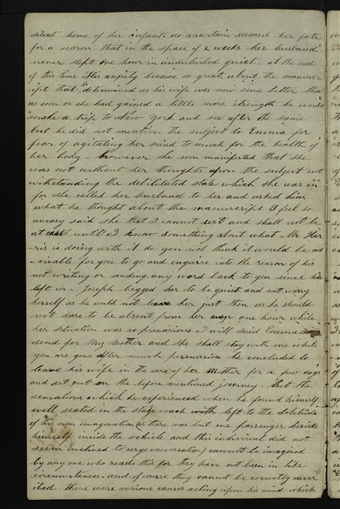 silent home of her infant so uncertain seemed her fate
for a season that in the space of 2 weeks her husband
never slept one hour in undisturbed quiet. at the end
of this time His anxiety became so great about the manuscr-
ipt that determined as his wife was now some better that
as soon as she had gained a little more strength he would
make a trip to New York and see after the same
but he did not mention the subject to Emma for
fear of agitating her mind to much for the health of
her body — however she soon manifested that she
was not without her thoughts upon the subject not
withstanding the debilitated state which she was in
for she called her husband to her and asked him
what he thought about the manuscript I feel so
uneasy said she that I cannot rest and shall not be
at ease until I know something about what Mr Har-
ris is doing with it do you not think it would be ad
-visable for you to go and enquire into the reason of his
not writing or sending any word back to you since he
left us. Joseph begged her to be quiet and not worry
herself as he could not leave her just then as he should
not dare to be absent from her one hour while
her situation was so precarious. I will said Emma
send for my mother and she shall stay with me while
you are gone after much persuasion he concluded to
leave his wife in the care of her mother for a few days
and set out on the before mentioned journey. But the
sensations which he experienced when he found himself
well seated in the stage coach with left to the solitude
of his own imagination (as there was but one passenger beside
himself inside the vehicle and this individual did not
seem inclined to urge conversation) cannot be imagined
by any one who reads this for they have not been in like
circumstances and of course they cannot be correctly descr
ibed. there were various causes acting upon his mind which